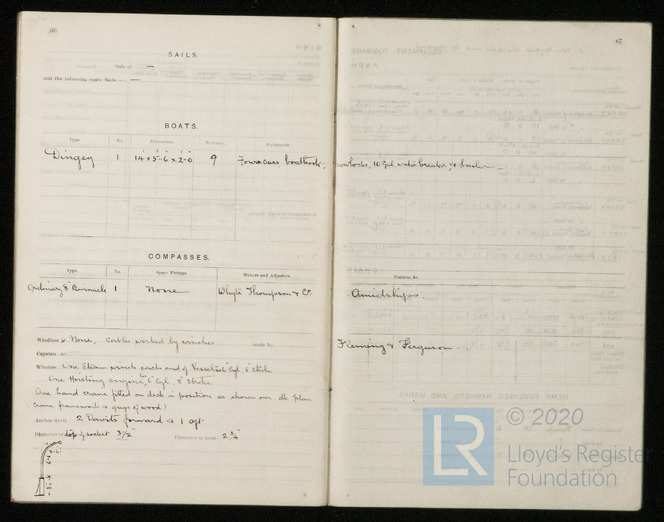 66
SAILS.
Suit of —
and the following spare Sails — —
BOATS.
Type. No. Dimensions. No. Carries. Equipment.
Dingey 1 14 x 5.6 x 2.0 9 Four oars boathook,
COMPASSES.
Type. No. Spare Fittings. Makers and Adjusters.
Ordinary & Binnacle 1 None Whyte Thompson & Co.
Windlass is None, Cables worked by winches made by
Capstan
Winches One Steam winch each end of Vessel Cyl. 8" Stroke
One Hoisting engine, 6" Cyl. 8" Stroke
One hand crane fitted on deck in position as shown on dk plan
crane framework & guys of wood)
Anchor davit 2 Davits forward & 1 aft
Diameter at top of socket 3½" Diameter at head 2¾"
67
rowlocks, 10 gal water breaker, & bailer —
Position, &c.
Amidships.
Fleming & Ferguson.
© 2020
LR
Lloyd's Register
Foundation